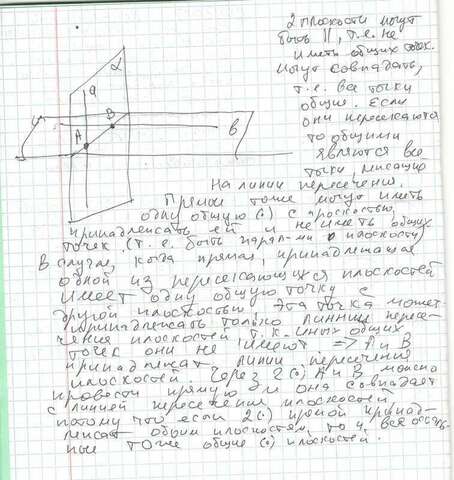 2 плоскости могут
быть ||, т.е. не
иметь общих точек.
могут совпадать,
т.е. все точки
общие. Если
они пересекаются
то общими
являются все
точки, лежащие
на линии пересечения.
Прямые тоже могут иметь
одну общую (•) с плоскостью,
принадлежать ей и не иметь общих
точек (т.е. быть паралл-ми плоскости)
В случае, когда прямая, принадлежащая
одной из пересекающихся плоскостей
имеет одну общую точку с
другой плоскостью, эта точка может
принадлежать только линии пересе-
чения плоскостей т.к. иных общих
точек они не имеют => A и B
принадлежат линии пересечения
плоскостей. Через 2 (•) A и B можно
провести прямую и она совпадает
с линией пересечения плоскостей
потому что если 2 (•) прямой принад-
лежат обоим плоскостям, то и все осталь-
ные тоже общие (•) плоскостей.
α
a
B
A
в